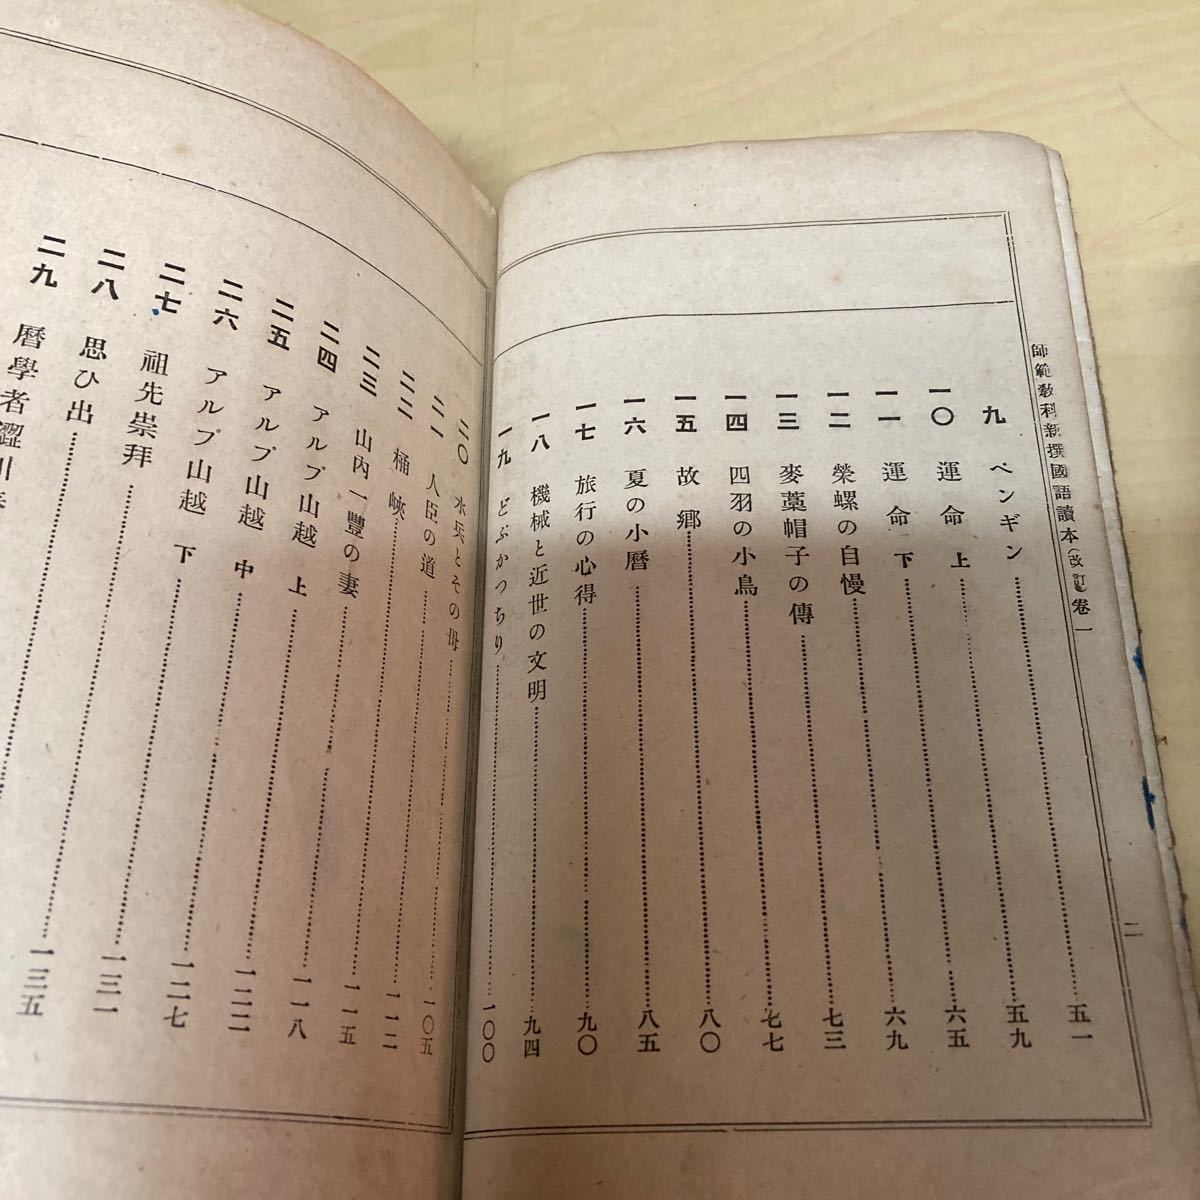 師範教科新撰國語讀本(改訂)卷一
二
九 ペンギン……五一
一〇 運命 上……五九
一一 運命 下……六五
一二 榮螺の自慢……六九
一三 麥藁帽子の傳……七三
一四 四羽の小鳥……七七
一五 故鄕……八〇
一六 夏の小曆……八五
一七 旅行の心得……九〇
一八 機械と近世の文明……九四
一九 どぶかつちり……一〇〇
二〇 水兵とその母……一〇五
二一 人臣の道……一一二
二二 桶峽……一一五
二三 山內一豐の妻……一一八
二四 アルプ山越 上……一二二
二五 アルプ山越 中……一二七
二六 アルプ山越 下……一三一
二七 祖先崇拜……一三五
二八 思ひ出……
二九 曆學者澀川春